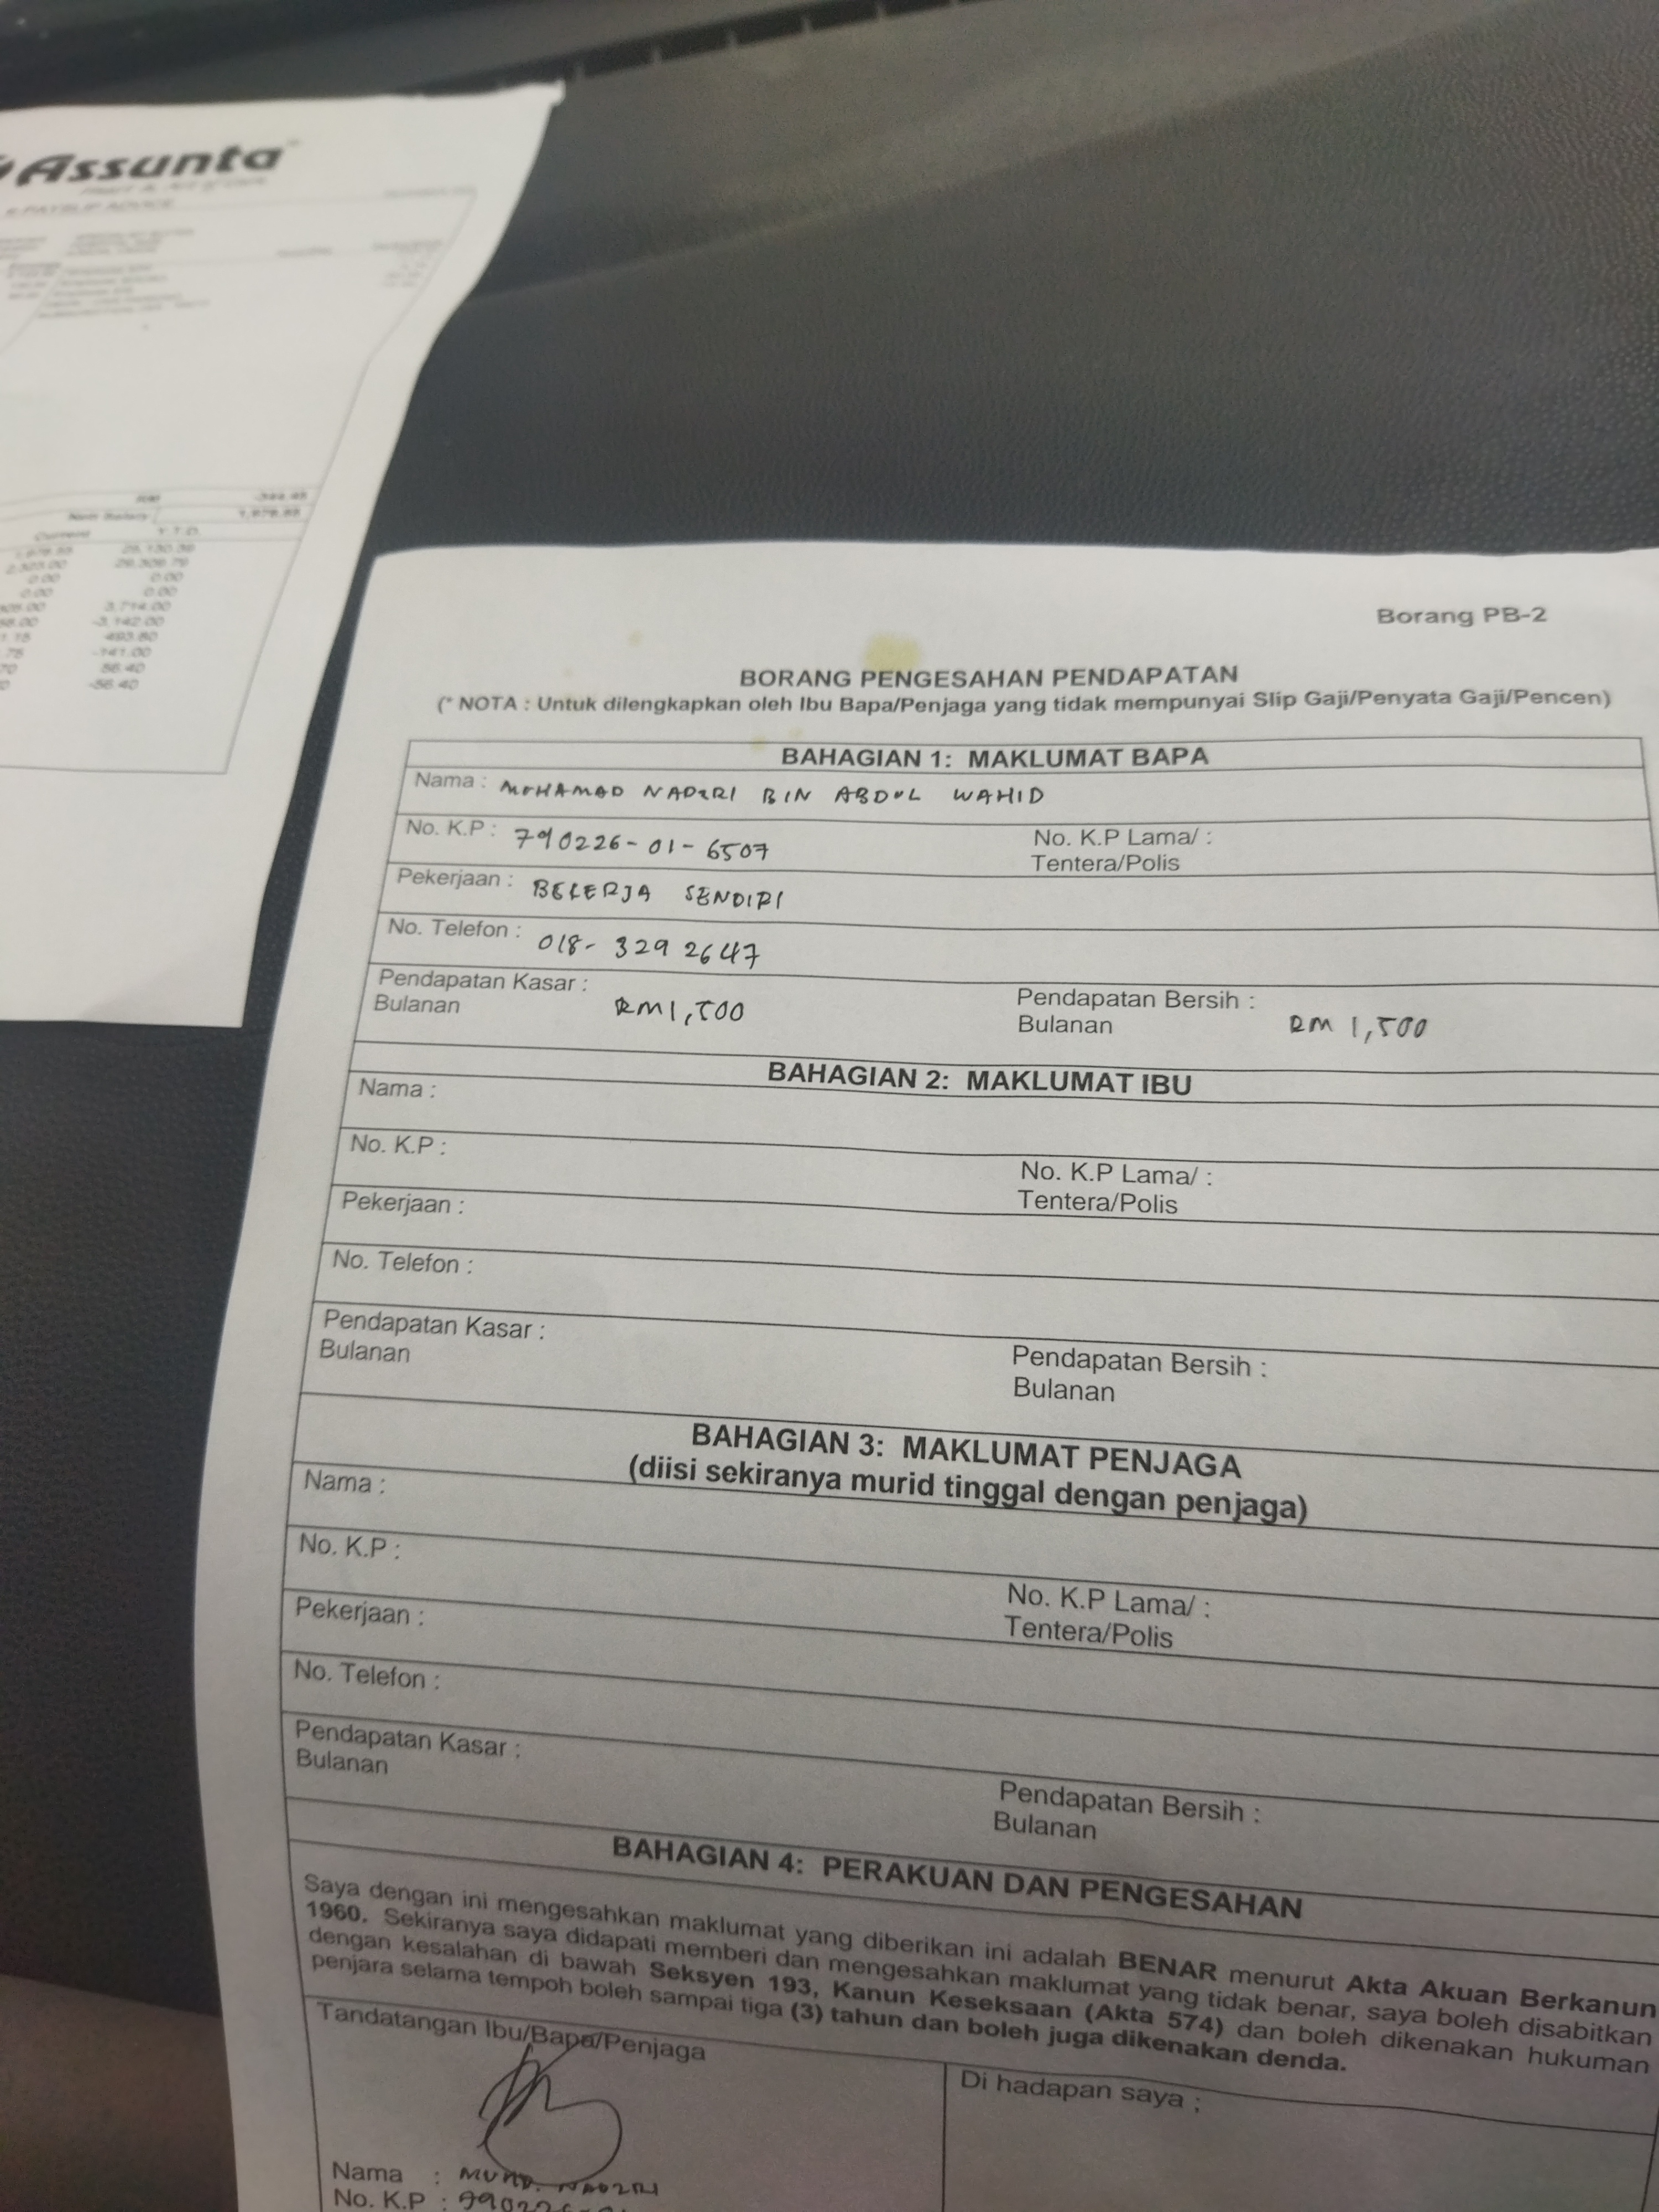 Assunta
e-PAYSLIP ADVICE
RM -344.45
Nett Salary : 1,978.55
Current Y.T.D.
1,978.55 25,130.39
2,323.00
0.00 0.00
0.00 0.00
3,714.00
-3,142.00
493.60
-141.00
56.40
-56.40
Borang PB-2
BORANG PENGESAHAN PENDAPATAN
(* NOTA : Untuk dilengkapkan oleh Ibu Bapa/Penjaga yang tidak mempunyai Slip Gaji/Penyata Gaji/Pencen)
BAHAGIAN 1: MAKLUMAT BAPA
Nama : MOHAMAD NADZRI BIN ABDUL WAHID
No. K.P : 790226-01-6507 No. K.P Lama/ :
Tentera/Polis
Pekerjaan : BEKERJA SENDIRI
No. Telefon : 018- 329 2647
Pendapatan Kasar : RM1,500 Pendapatan Bersih : RM 1,500
Bulanan Bulanan
BAHAGIAN 2: MAKLUMAT IBU
Nama :
No. K.P : No. K.P Lama/ :
Tentera/Polis
Pekerjaan :
No. Telefon :
Pendapatan Kasar : Pendapatan Bersih :
Bulanan Bulanan
BAHAGIAN 3: MAKLUMAT PENJAGA
(diisi sekiranya murid tinggal dengan penjaga)
Nama :
No. K.P : No. K.P Lama/ :
Tentera/Polis
Pekerjaan :
No. Telefon :
Pendapatan Kasar : Pendapatan Bersih :
Bulanan Bulanan
BAHAGIAN 4: PERAKUAN DAN PENGESAHAN
Saya dengan ini mengesahkan maklumat yang diberikan ini adalah BENAR menurut Akta Akuan Berkanun
1960. Sekiranya saya didapati memberi dan mengesahkan maklumat yang tidak benar, saya boleh disabitkan
dengan kesalahan di bawah Seksyen 193, Kanun Keseksaan (Akta 574) dan boleh dikenakan hukuman
penjara selama tempoh boleh sampai tiga (3) tahun dan boleh juga dikenakan denda.
Tandatangan Ibu/Bapa/Penjaga Di hadapan saya ;
Nama : MUHD. NADZRI
No. K.P : 790226-